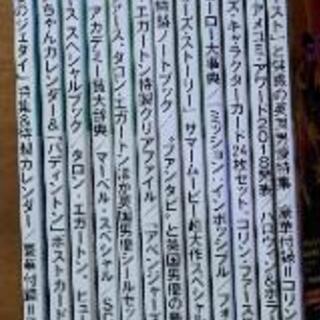 スト」と魅惑の英国男優特集 豪華付録＝コリン
アメコミアワード2018発表 ハロウィン&ホラ
ズ・キャラクターカード24枚セット、コリン・ファース
ーロー大事典／ミッション:インポッシブル／フォ
ーズ・ストーリー」サマームービー超大作スペシャル
特製ノートブック／「ファンタビ」と英国男優の
エガートン特製クリアファイル／「アベンジャーズ
アース、タロン・エガートンほか英国男優シールセッ
アカデミー賞大辞典／マーベル・スペシャル
ース スペシャルブック タロン・エガートン、ヒュー
ちゃんカレンダー&「パディントン」ポストカード
のジェダイ」特集&特製カレンダー／豪華付録＝